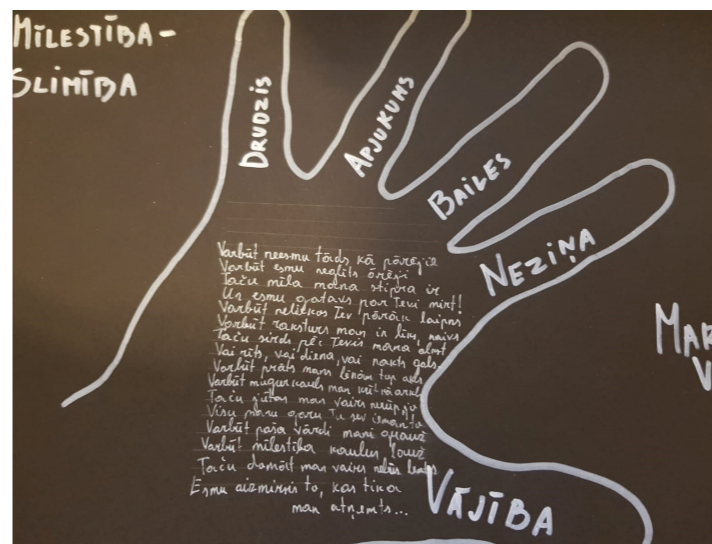 MĪLESTĪBA-
SLIMĪBA
DRUDZIS
APJUKUMS
BAILES
NEZIŅA
Varbūt neesmu tāds kā pārējie
Varbūt esmu neglīts ārēji
Taču mīla mana stipra ir
Un esmu gatavs par Tevi mirt!
Varbūt neliekos Tev pārāk laipns
Varbūt raksturs man ir līks, naivs
Taču sirds pēc Tevis mana alkst
Vai rīts, vai diena, vai nakts gals
Varbūt prāts mans lēnām top akls
Varbūt mugurkauls man
Taču jūtas man vairs
Visu manu garu Tu sev
Varbūt paša vārdi mani grauž
Varbūt mīlestība kaulus lauž
Taču domāt man vairs
Esmu aizmirsis to, kas tika
man atņemts...
VĀJĪBA
MAR
V